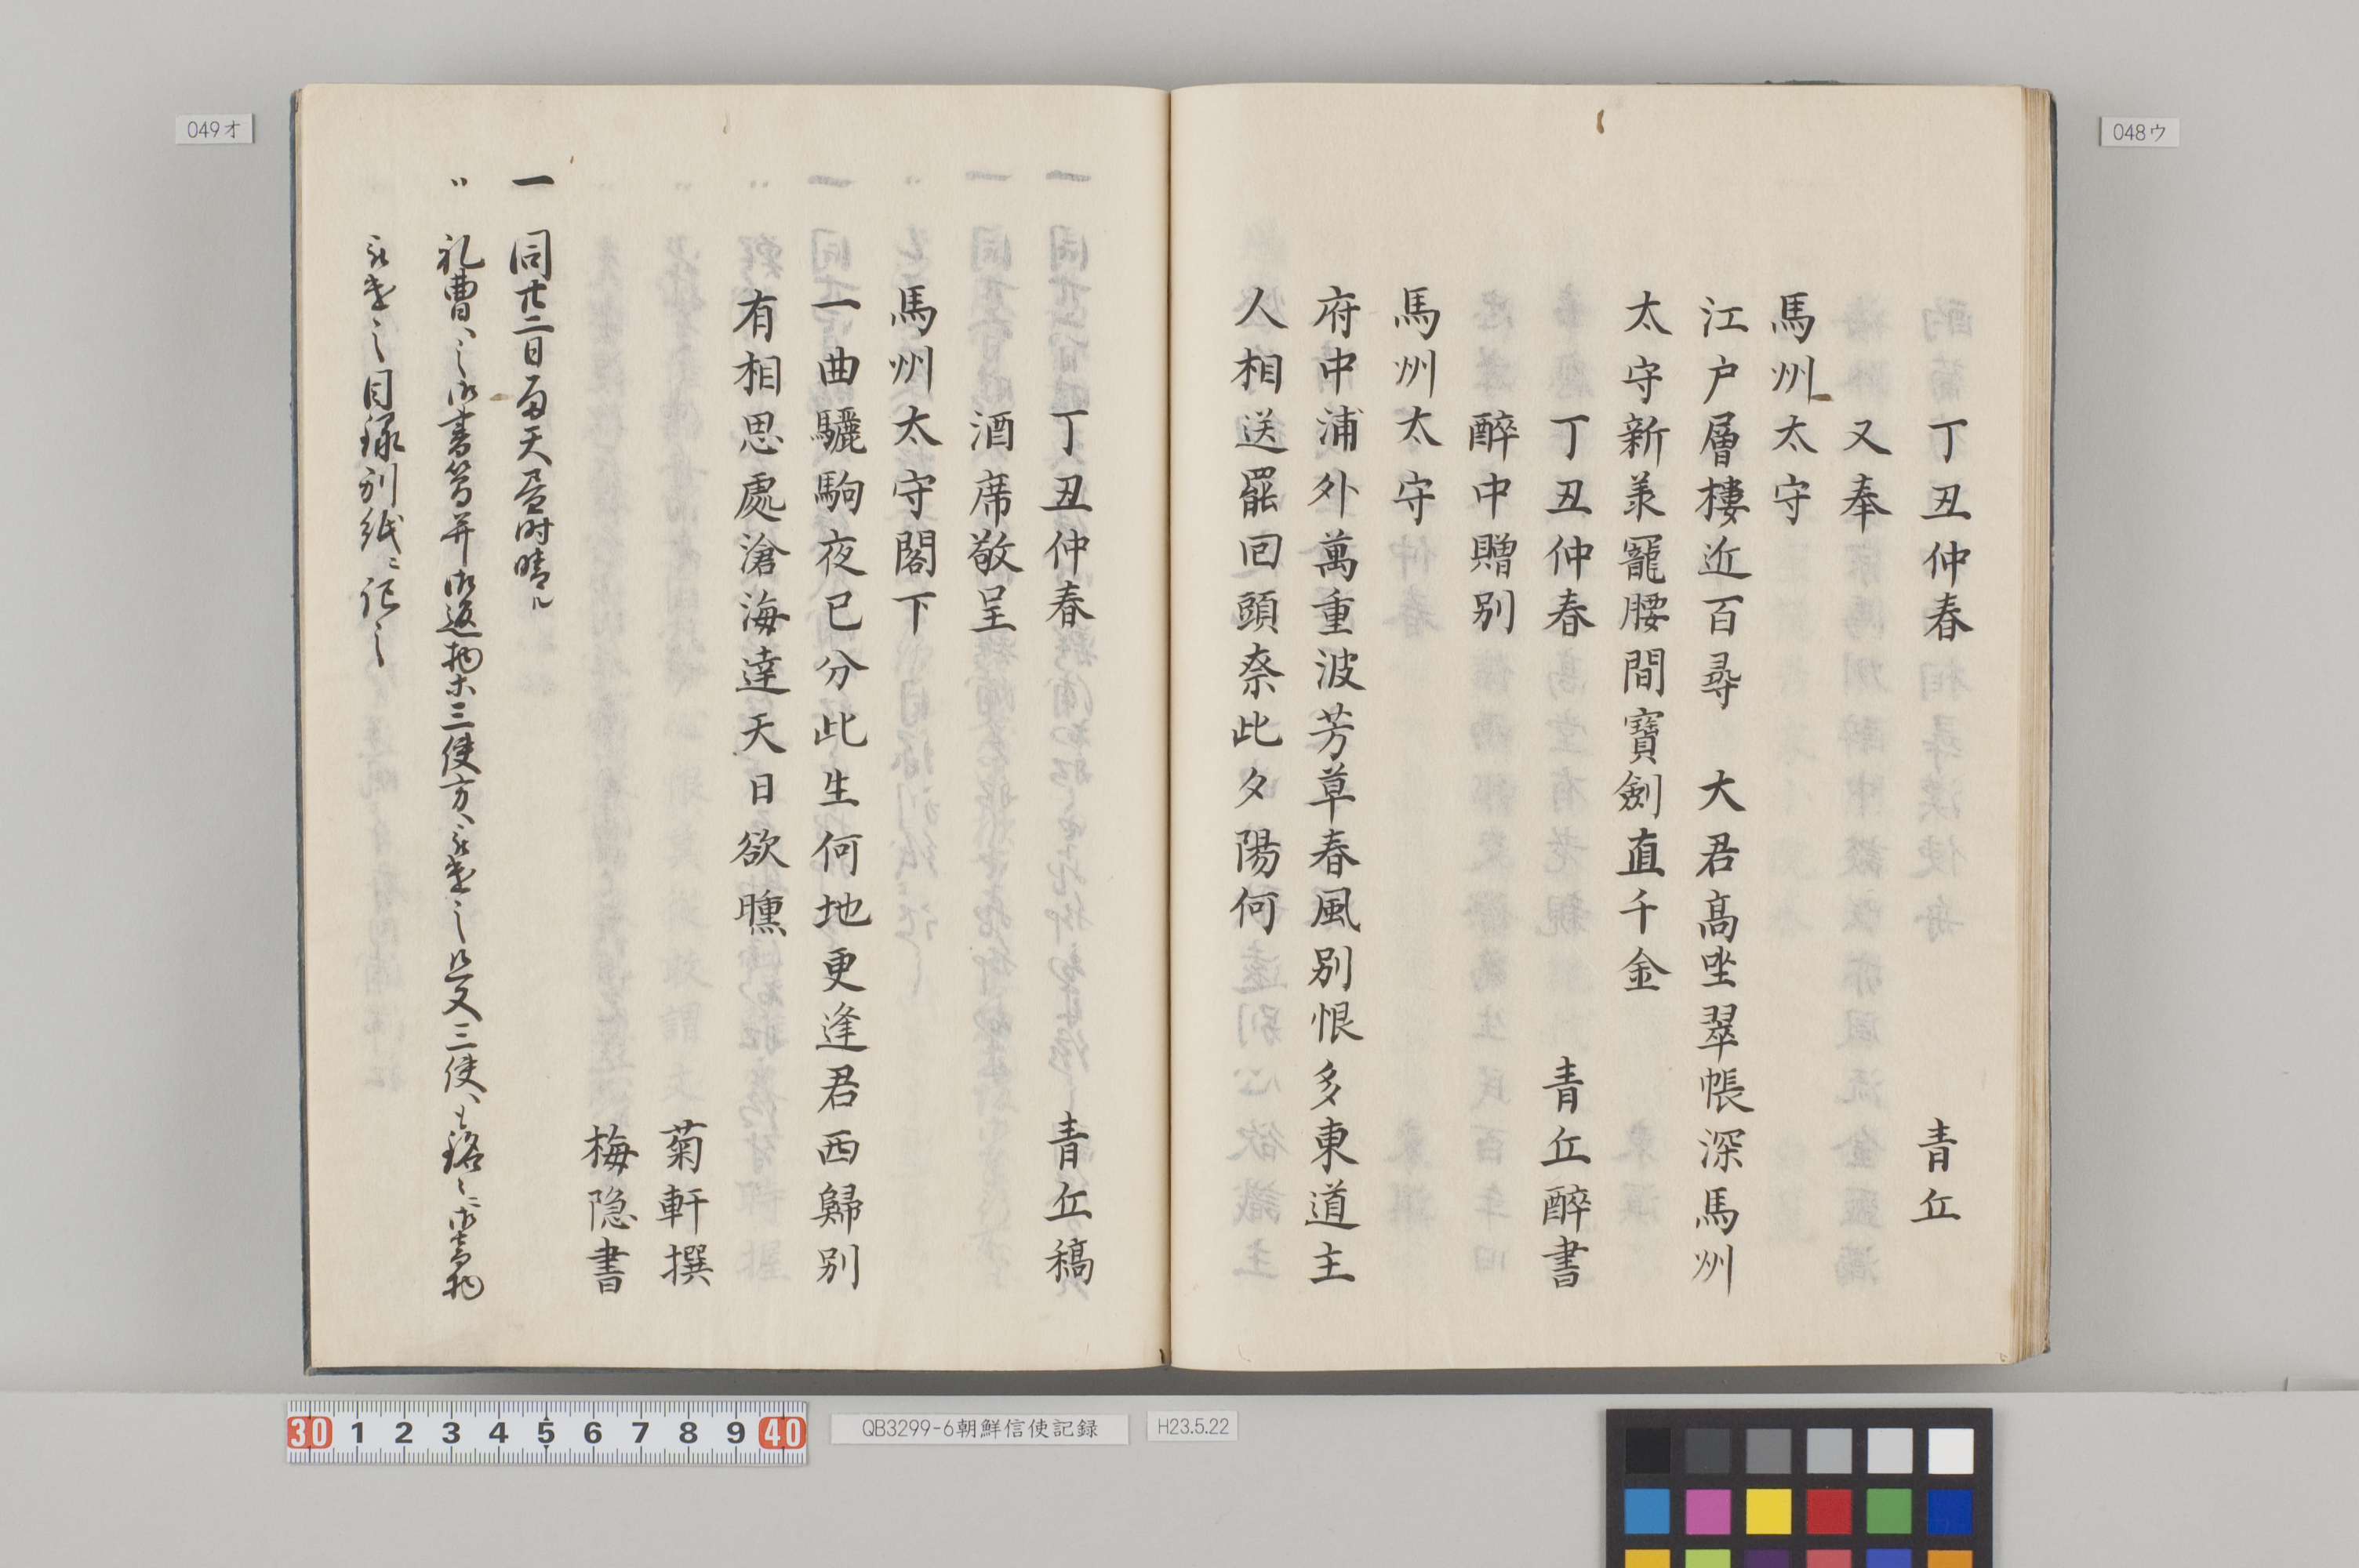 048ウ
丁丑仲春　青丘
又奉
馬州太守
江戸層樓近百尋　大君高坐翠帳深馬州
太守新羕寵腰間寶劍直千金
丁丑仲春　青丘醉書
醉中贈別
馬州太守
府中浦外萬重波芳草春風別恨多東道主
人相送罷回頭奈此夕陽何
049オ
丁丑仲春　青丘稿
酒席敬呈
馬州太守閣下
一曲驪駒夜已分此生何地更逢君西歸別
有相思處滄海逹天日欲曛
菊軒撰
梅隐書
一 同廿二日雨天昼时晴ル
〃 礼曹へ之御書簡并御返物等三使方へ被遣之且又三使へも銘々ニ御音物
被遣之目録別紙ニ記之
30 1 2 3 4 5 6 7 8 9 40
QB3299-6朝鮮信使記録
H23.5.22